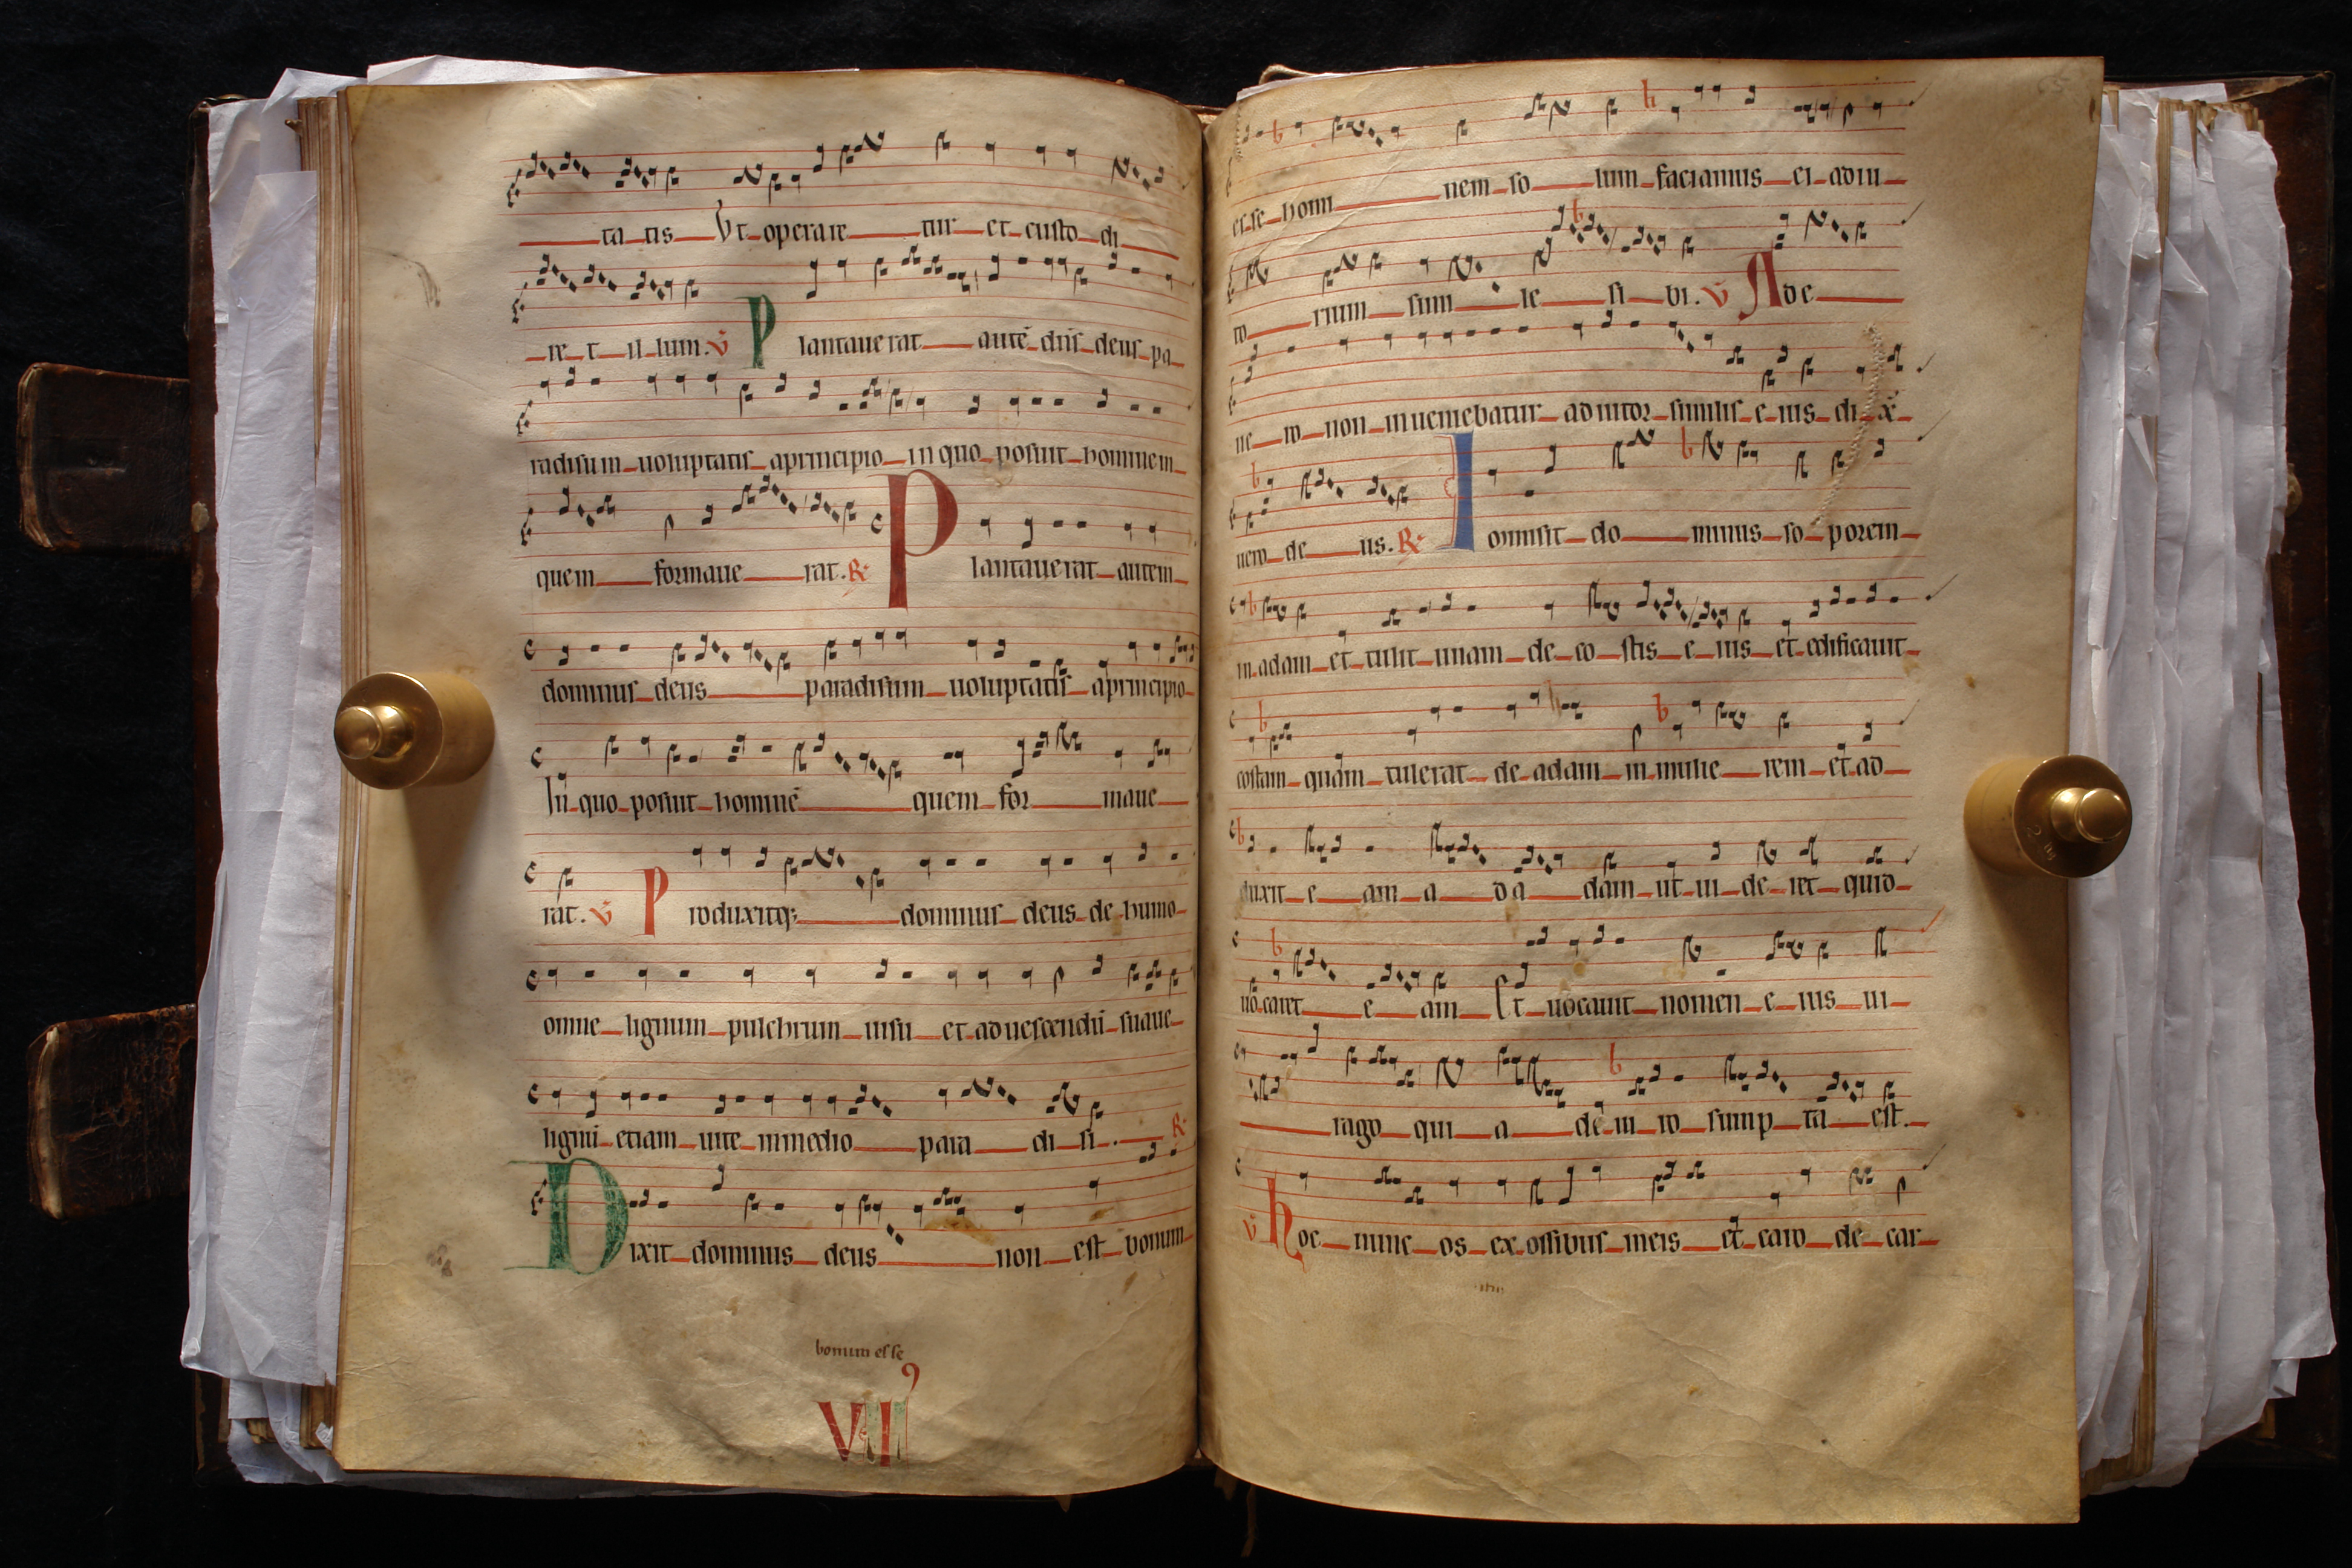 ta tis Ut operare tur et custo di
re t il lum. V Plantauerat autē dn̄s deus pa
radisum uoluptatis aprincipio in quo posuit hominem
quem formaue rat. R Plantauerat autem
dominus deus paradisum uoluptatis aprincipio
In quo posuit hominē quem for maue
rat. V Produxitq; dominus deus de humo
omne lignum pulchrum uisu et aduescendū suaue
lignū etiam uite inmedio para di si. R
Dixit dominus deus non est bonum
bonum esse
VII
esse homi nem so lum faciamus ei adiu
to rium sim ile si bi. V Ade
ne ro non inueniebatur adiutor similis e ius di x̄
uero de us. R Inmisit do minus so porem
in adam et tulit unam de co stis e ius et edificauit
costam quam tulerat de adam in mulie rem et ad
duxit e am a da dam ut ui de ret quid
uo caret e am Et uocauit nomen e ius ui
rago qui a de ui ro sump ta est.
V hoc nunc os ex ossibus meis et caro de car